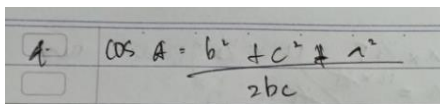 cos A = b² + c² ± a²
2bc